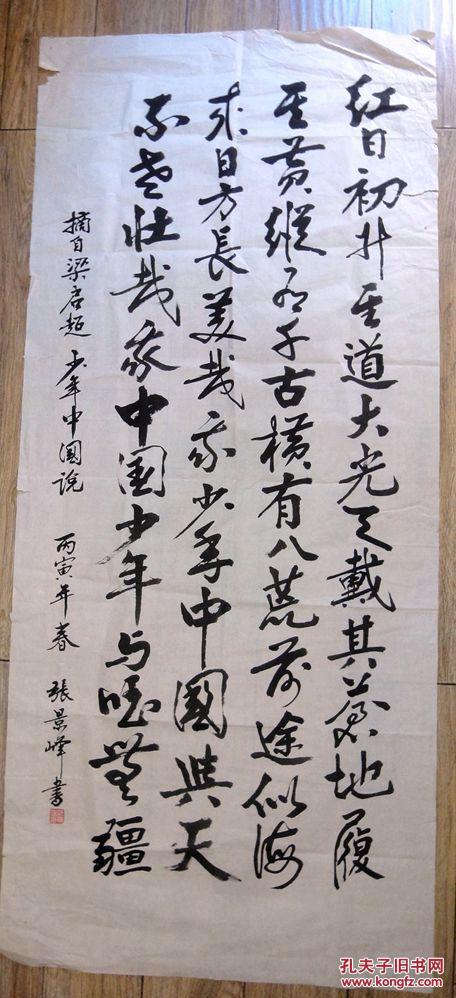 紅日初升其道大光天戴其蒼地履
其黄縱有千古横有八荒前途似海
来日方長美哉我少年中國與天
不老壯哉我中国少年与國無疆
摘自梁启超 少年中國說 丙寅年春 張景峰書
孔夫子旧书网
www.kongfz.com